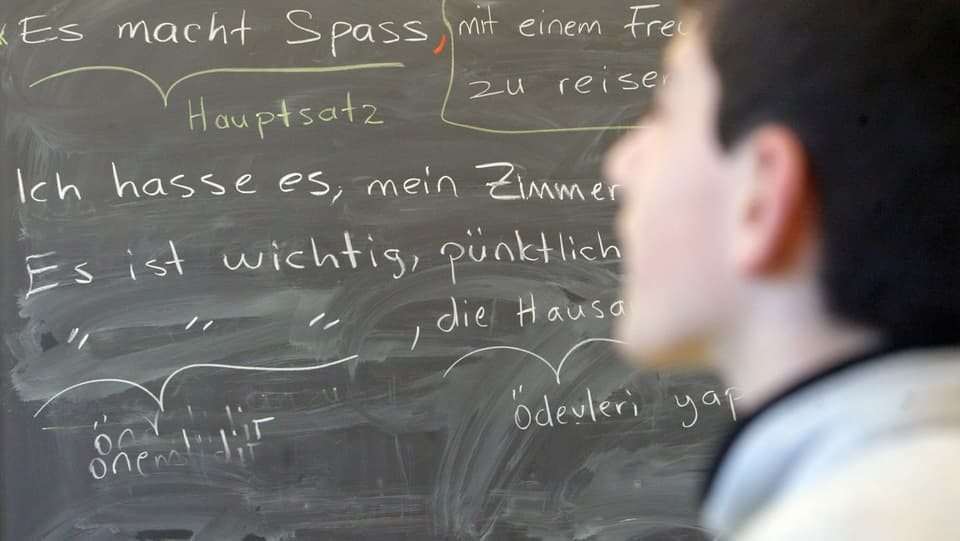 Es macht Spass, mit einem
Hauptsatz
zu
Ich hasse es, mein Zimmer
Es ist wichtig, pünktlich
〃 〃 〃 , die
önemlidir
Ödevleri